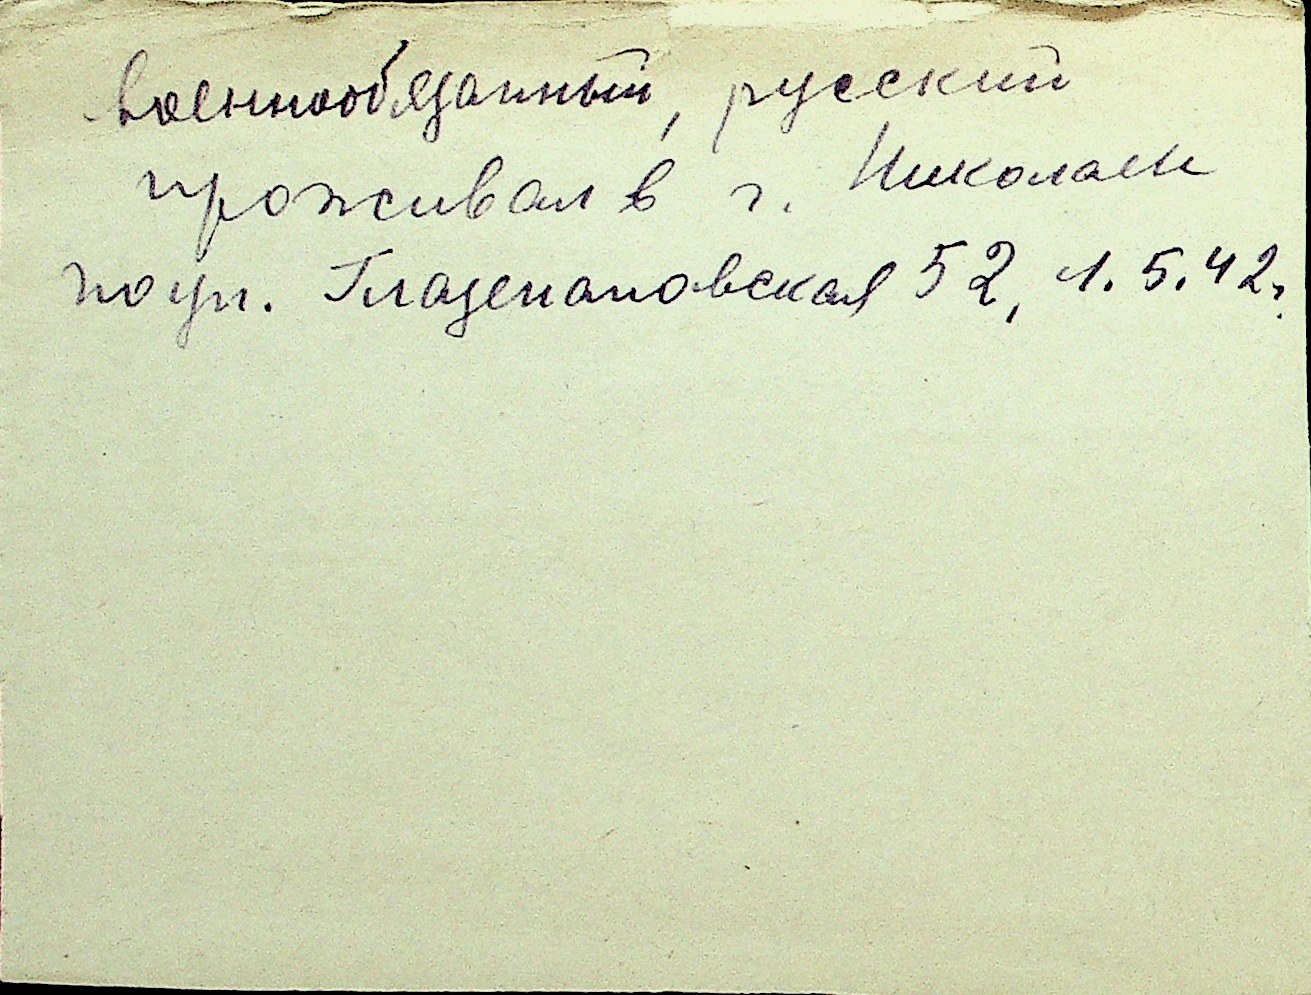 военнообязанный, русский
проживал в г. Николаев
по ул. Глазенаповская 52, 1.5.42г.